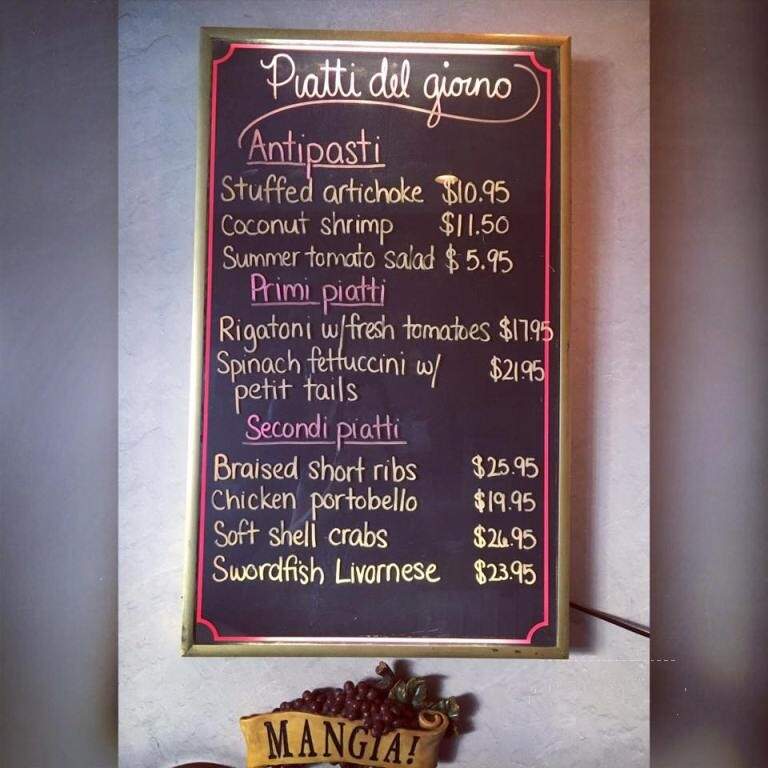 Piatti del giorno
Antipasti
Stuffed artichoke $10.95
Coconut shrimp $11.50
Summer tomato salad $5.95
Primi piatti
Rigatoni w/fresh tomatoes $17.95
Spinach fettuccini w/ $21.95
petit tails
Secondi piatti
Braised short ribs $25.95
Chicken portobello $19.95
Soft shell crabs $26.95
Swordfish Livornese $23.95
MANGIA!